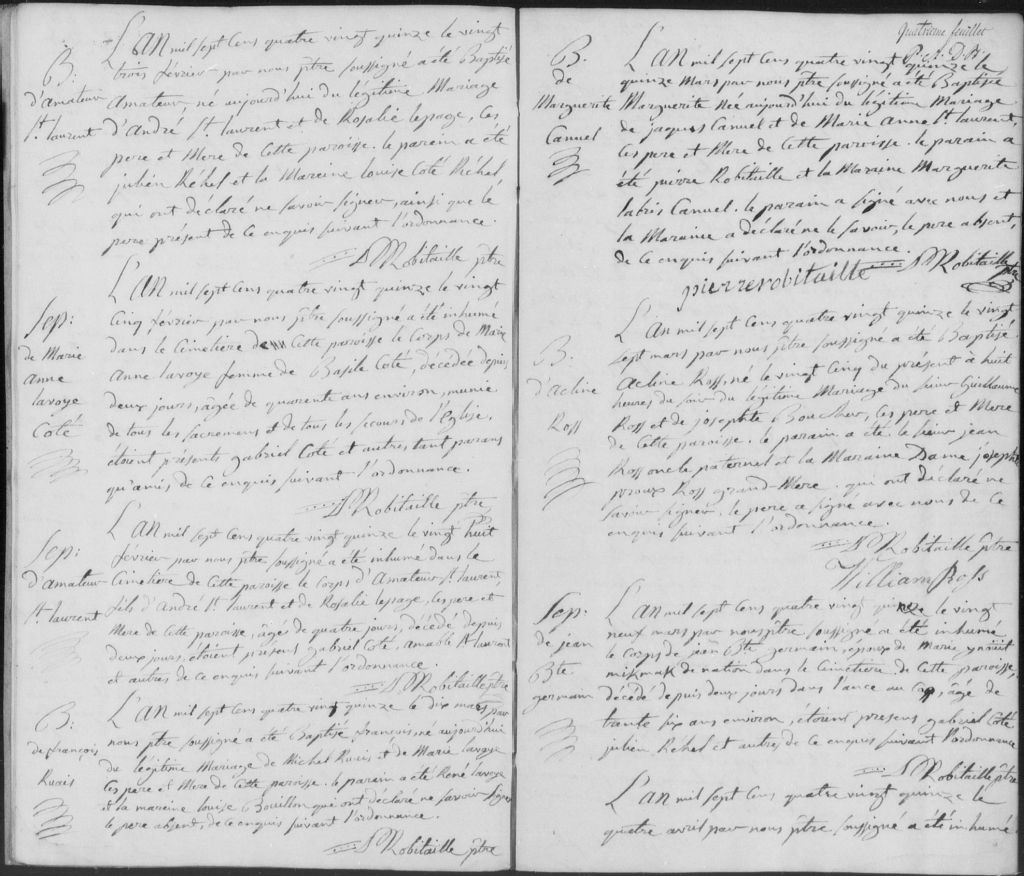 L'AN mil sept Cens quatre vingt quinze le vingt
B: trois février par nous ptre soussigné a été Baptisé
d'Amateur Amateur, né aujourd'hui du légitime Mariage
St. laurent d'André St. laurent et de Rosalie lepage, Ces
pere et Mere de Cette paroisse. le parein a été
julien Réhel et la Mareine louise Coté Réhel
qui ont déclaré ne savoir signer, ainsi que le
pere présent de ce enquis suivant l'ordonnance.
Robitaille ptre
L'AN mil sept Cens quatre vingt quinze le vingt
Sep: Cinq février, par nous ptre soussigné a été inhumé
de Marie dans le Cimetière de Cette paroisse le Corps de Marie
Anne Anne lavoye femme de Basile Coté, décédée depuis
lavoye deux jours, âgée de quarente ans environ, munie
Coté de tous les sacremens et de tous les secours de l'Eglise,
étoient présents gabriel Coté et autres tant parans
qu'amis de Ce enquis suivant l'ordonnance.
Robitaille ptre
L'AN mil sept Cens quatre vingt quinze le vingt huit
Sep: février par nous ptre soussigné a été inhumé dans le
d'Amateur Cimetière de Cette paroisse le Corps d'Amateur St. laurent,
St. laurent fils d'André St. laurent et de Rosalie lepage, Ces pere et
Mere de Cette paroisse, âgés de quatre jours, décédé depuis
deux jours, étoient présens gabriel Coté, Amable St laurent
et autres de ce enquis suivant l'ordonnance.
Robitaille ptre
L'AN mil sept Cens quatre vingt quinze le dix mars par
B: nous ptre soussigné a été Baptisé, françois, né aujourd'hui
de françois du légitime Mariage de Michel Ruais et de Marie lavoye
Ruais Ces pere et Mere de Cette paroisse. le parein a été René lavoye
et la mareine louise Bouillon qui ont déclaré ne savoir signer
le pere absent, de ce enquis suivant l'ordonnance.
Robitaille ptre
quatrieme feuillet
L'AN mil sept Cens quatre vingt quinze le
B. quinze Mars par nous ptre soussigné a été Baptisée
de
Marguerite Marguerite Née aujourd'hui du légitime Mariage
Canuel de jaques Canuel et de Marie Anne St laurent,
Ces pere et Mere de Cette paroisse. le parain a
été pierre Robitaille et la Maraine Marguerite
Canuel. le parain a signé avec nous et
la Maraine a déclaré ne le savoir, le pere absent,
de ce enquis suivant l'ordonnance.
pierre robitaille Robitaille ptre
L'AN mil sept Cens quatre vingt quinze le vingt
B. sept mars par nous ptre soussigné a été Baptisé
d'Acline Acline Ross, né le vingt Cinq du présent à huit
Ross heures du soir du légitime Mariage du sieur Guillaume
Ross et de josephte Boucher, Ces pere et Mere
de Cette paroisse. le parain a été le sieur jean
Ross oncle paternel et la Maraine Dame josephte
proux Ross grand-Mere. qui ont déclaré ne
savoir signer. le pere a signé avec nous de ce
enquis suivant l'ordonnance.
Robitaille ptre
William Ross
Sep. L'AN mil sept Cens quatre vingt quinze le vingt
de jean neuf mars par nous ptre soussigné a été inhumé
Bte le Corps de jean Bte germain, epoux de Marie
germain mikmak de nation dans le Cimetière de Cette paroisse,
décédé depuis deux jours dans l'ance au âgé de
trante six ans environ, étoient présens gabriel Coté
julien Réhel et autres, de ce enquis suivant l'ordonnance
Robitaille ptre
L'AN mil sept Cens quatre vingt quinze le
quatre avril par nous ptre soussigné a été inhumé